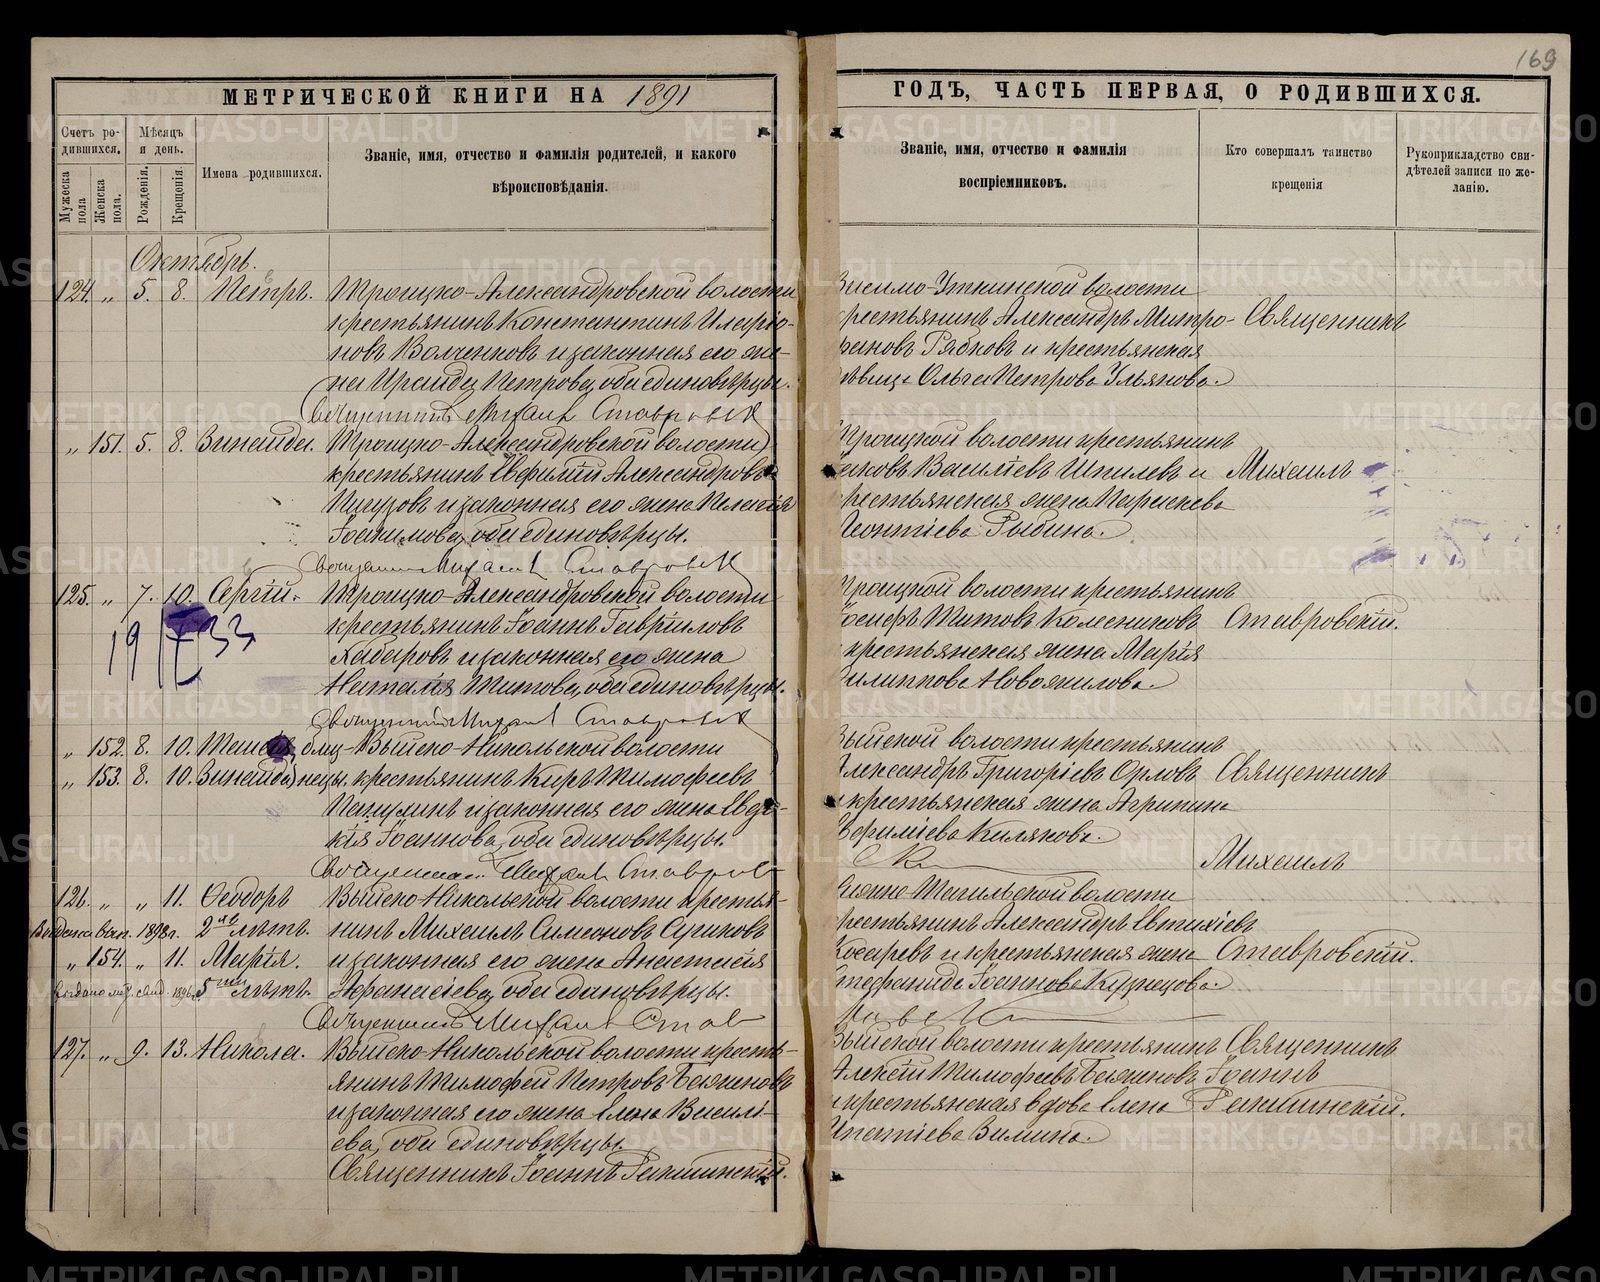 169
МЕТРИЧЕСКОЙ КНИГИ НА 1891
ГОДЪ, ЧАСТЬ ПЕРВАЯ, О РОДИВШИХСЯ.
Счетъ родившихся.
Мужеска пола
Женска пола.
Мѣсяцъ и день.
Рожденія.
Крещенія.
Имена родившихся.
Званіе, имя, отчество и фамилія родителей, и какого
вѣроисповѣданія.
Званіе, имя, отчество и фамилія
воспріемниковъ.
Кто совершалъ таинство
крещенія
Рукоприкладство сви-
дѣтелей записи по же-
ланію.
Октябрь.
124. „ 5. 8. Петръ. Троицко-Александровской волости
крестьянинъ Константинъ Иларіо-
новъ Волченковъ и законная его же-
на Ираида Петрова, оба единовѣрцы.
Священникъ Михаил Ставровск
Висимо-Уткинской волости
крестьянинъ Александръ Митро-
фановъ Рябковъ и крестьянская
дѣвица Ольга Петрова Ульянова.
Священникъ
„ 151. 5. 8. Зинаида. Троицко-Александровской волости
крестьянинъ Евфимій Александровъ
и законная его жена Пелагія
Іоакимова, оба единовѣрцы.
Священник Михаил Ставровск
Троицкой волости крестьянинъ
Яковъ Василіевъ Шпилевъ и
крестьянская жена Параскева
Леонтіева Рыбина.
Михаилъ
125. „ 7. 10. Сергій. Троицко-Александровской волости
крестьянинъ Іоаннъ Гавріиловъ
Хабаровъ и законная его жена
Наталія Титова, оба единовѣрцы.
Священник Михаил Ставровск
19 33
Троицкой волости крестьянинъ
Іосифъ Титовъ Колесниковъ
крестьянская жена Марія
Филиппова Новожилова.
Ставровскій.
„ 152. 8. 10. Таисія, близ- Выйско-Никольской волости
„ 153. 8. 10. Зинаида, нецы. крестьянинъ Киръ Тимофеевъ
и законная его жена Евдо-
кія Іоаннова, оба единовѣрцы.
Священник Михаил Ставров
Выйской волости крестьянинъ
Александръ Григоріевъ Орловъ
и крестьянская жена Агрипина
Ефиміева Килякова.
Священникъ
Михаилъ
126. „ „ 11. Ѳеодоръ Выйско-Никольской волости крестья-
2 лѣтъ. нинъ Михаилъ Симеоновъ Сушковъ
„ 154. „ 11. Марія. и законная его жена Анастасія
5 лѣтъ. Афанасіева, оба единовѣрцы.
Священникъ Михаил Став
Тагильской волости
крестьянинъ Александръ Евтихіевъ
Косаревъ и крестьянская жена
Степанида Іоаннова Кузнецова.
Ставровскій.
127. „ 9. 13. Никола. Выйско-Никольской волости кресть-
янинъ Тимофей Петровъ Баженовъ
и законная его жена Елена Василі-
ева, оба единовѣрцы.
Священникъ Іоаннъ
Выйской волости крестьянинъ
Алексій Тимофеевъ Баженовъ
и крестьянская вдова Елена
Игнатіева Зимина.
Священникъ
Іоаннъ
METRIKI.GASO-URAL.RU